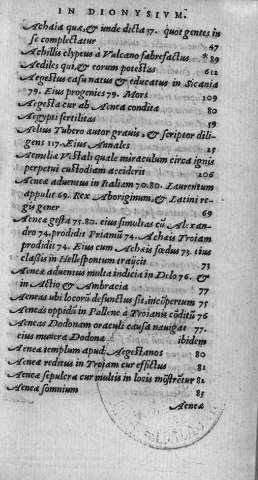 IN DIONYSIVM.
Achaia quæ, & unde dicta 37. quot gentes in
se complectatur 47
Achillis clypeus à Vulcano fabrefactus *89
Aediles qui, & eorum potestas 612
Aegestus casu natus & educatus in Sicania
79. Eius progenies 79. Mors 109
Aegesta cur ab Aenea condita 80
Aegypti fertilitas 59
Aelius Tubero autor grauis, & scriptor dili
gens 117. Eius Annales 25
Aemilia Vestali quale miraculum circa ignis
perpetui custodiam acciderit 106
Aeneæ aduentus in Italiam 70.80. Laurentum
appulit 69. Rex Aboriginum, & Latini re-
gis gener 69
Aeneæ gesta 75.80. eius simultas cũ Alexan-
dro 74. prodidit Priamũ 74. Achais Troiam
prodidit 74. Eius cum Achais fœdus 73. eius
classis in Hellespontum traijcit 73
Aeneæ aduentus multa indicia in Delo 76. &
in Actio & Ambracia 77
Aeneas ubi locorũ defunctus sit, incõpertum 75
Aeneas oppidũ in Pallene à Troianis cõditũ 76
Aeneas Dodonam oraculi causa nauigat 77.
eius munera Dodonæ ibidem
Aeneæ templum apud Aegestanos 80
Aeneæ reditus in Troiam cur effictus 81
Aeneæ sepulcra cur multis in locis mõstrẽtur 82
Aeneæ somnium 85
Aeneæ